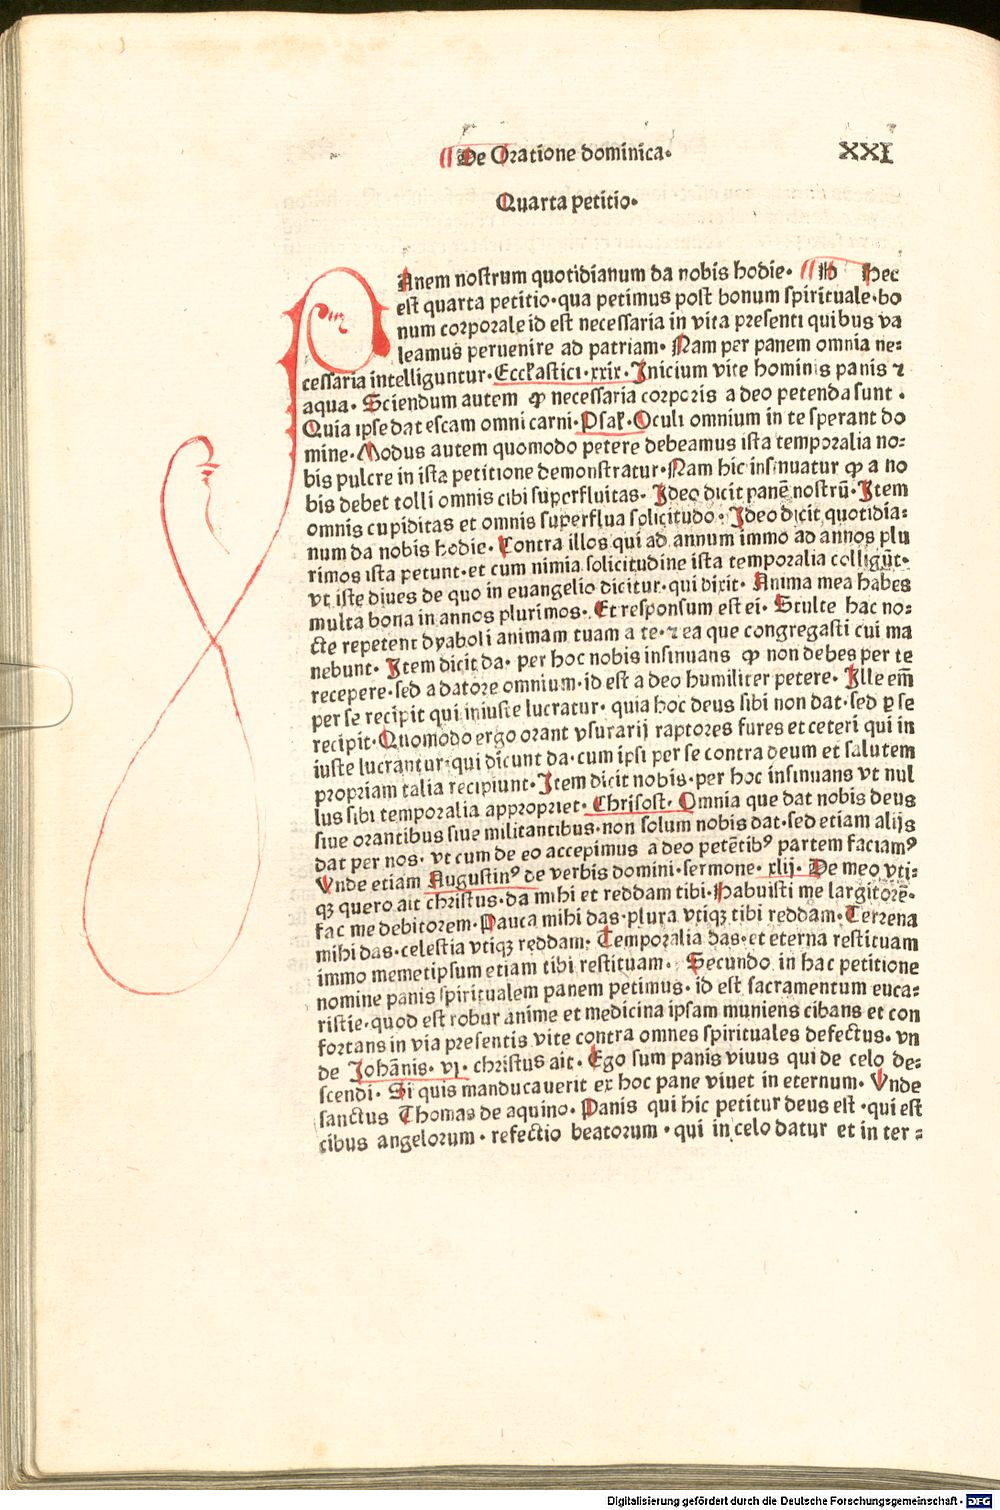 De Oratione dominica. XXI
Quarta petitio.
PAnem nostrum quotidianum da nobis hodie. Hec
est quarta petitio. qua petimus post bonum spirituale. bo
num corporale id est necessaria in vita presenti quibus va
leamus peruenire ad patriam. Nam per panem omnia ne=
cessaria intelliguntur. Eccłastici. xxix. Inicium vite hominis panis ⁊
aqua. Sciendum autem ꝙ necessaria corporis a deo petenda sunt.
Quia ipse dat escam omni carni. Psał. Oculi omnium in te sperant do
mine. Modus autem quomodo petere debeamus ista temporalia no=
bis pulcre in ista petitione demonstratur. Nam hic insinuatur ꝙ a no
bis debet tolli omnis cibi superfluitas. Ideo dicit panē nostrū. Item
omnis cupiditas et omnis superflua solicitudo. Ideo dicit quotidia=
num da nobis hodie. Contra illos qui ad annum immo ad annos plu
rimos ista petunt. et cum nimia solicitudine ista temporalia colligūt.
vt iste diues de quo in euangelio dicitur. qui dixit. Anima mea habes
multa bona in annos plurimos. Et responsum est ei. Stulte hac no=
cte repetent dyaboli animam tuam a te. ⁊ ea que congregasti cui ma
nebunt. Item dicit da. per hoc nobis insinuans ꝙ non debes per te
recepere. sed a datore omnium. id est a deo humiliter petere. Ille em̄
per se recipit qui iniuste lucratur. quia hoc deus sibi non dat. sed ꝑ se
recipit. Quomodo ergo orant vsurarij raptores fures et ceteri qui in
iuste lucrantur. qui dicunt da. cum ipsi per se contra deum et salutem
propriam talia recipiunt. Item dicit nobis. per hoc insinuans vt nul
lus sibi temporalia appropriet. Chrisost. Omnia que dat nobis deus
siue orantibus siue militantibus. non solum nobis dat. sed etiam alijs
dat per nos. vt cum de eo accepimus a deo petētibꝰ partem faciamꝰ
Vnde etiam Augustinꝰ de verbis domini. sermone. xlij. De meo vti=
qꝫ quero ait christus. da mihi et reddam tibi. Habuisti me largitorē.
fac me debitorem. Pauca mihi das. plura vtiqꝫ tibi reddam. Terrena
mihi das. celestia vtiqꝫ reddam. Temporalia das. et eterna restituam
immo memetipsum etiam tibi restituam. Secundo in hac petitione
nomine panis spiritualem panem petimus. id est sacramentum euca=
ristie. quod est robur anime et medicina ipsam muniens cibans et con
fortans in via presentis vite contra omnes spirituales defectus. vn
de Johānis. vj. christus ait. Ego sum panis viuus qui de celo de=
scendi. Si quis manducauerit ex hoc pane viuet in eternum. Vnde
sanctus Thomas de aquino. Panis qui hic petitur deus est. qui est
cibus angelorum. refectio beatorum. qui in celo datur et in ter=
Digitalisierung gefördert durch die Deutsche Forschungsgemeinschaft - DFG